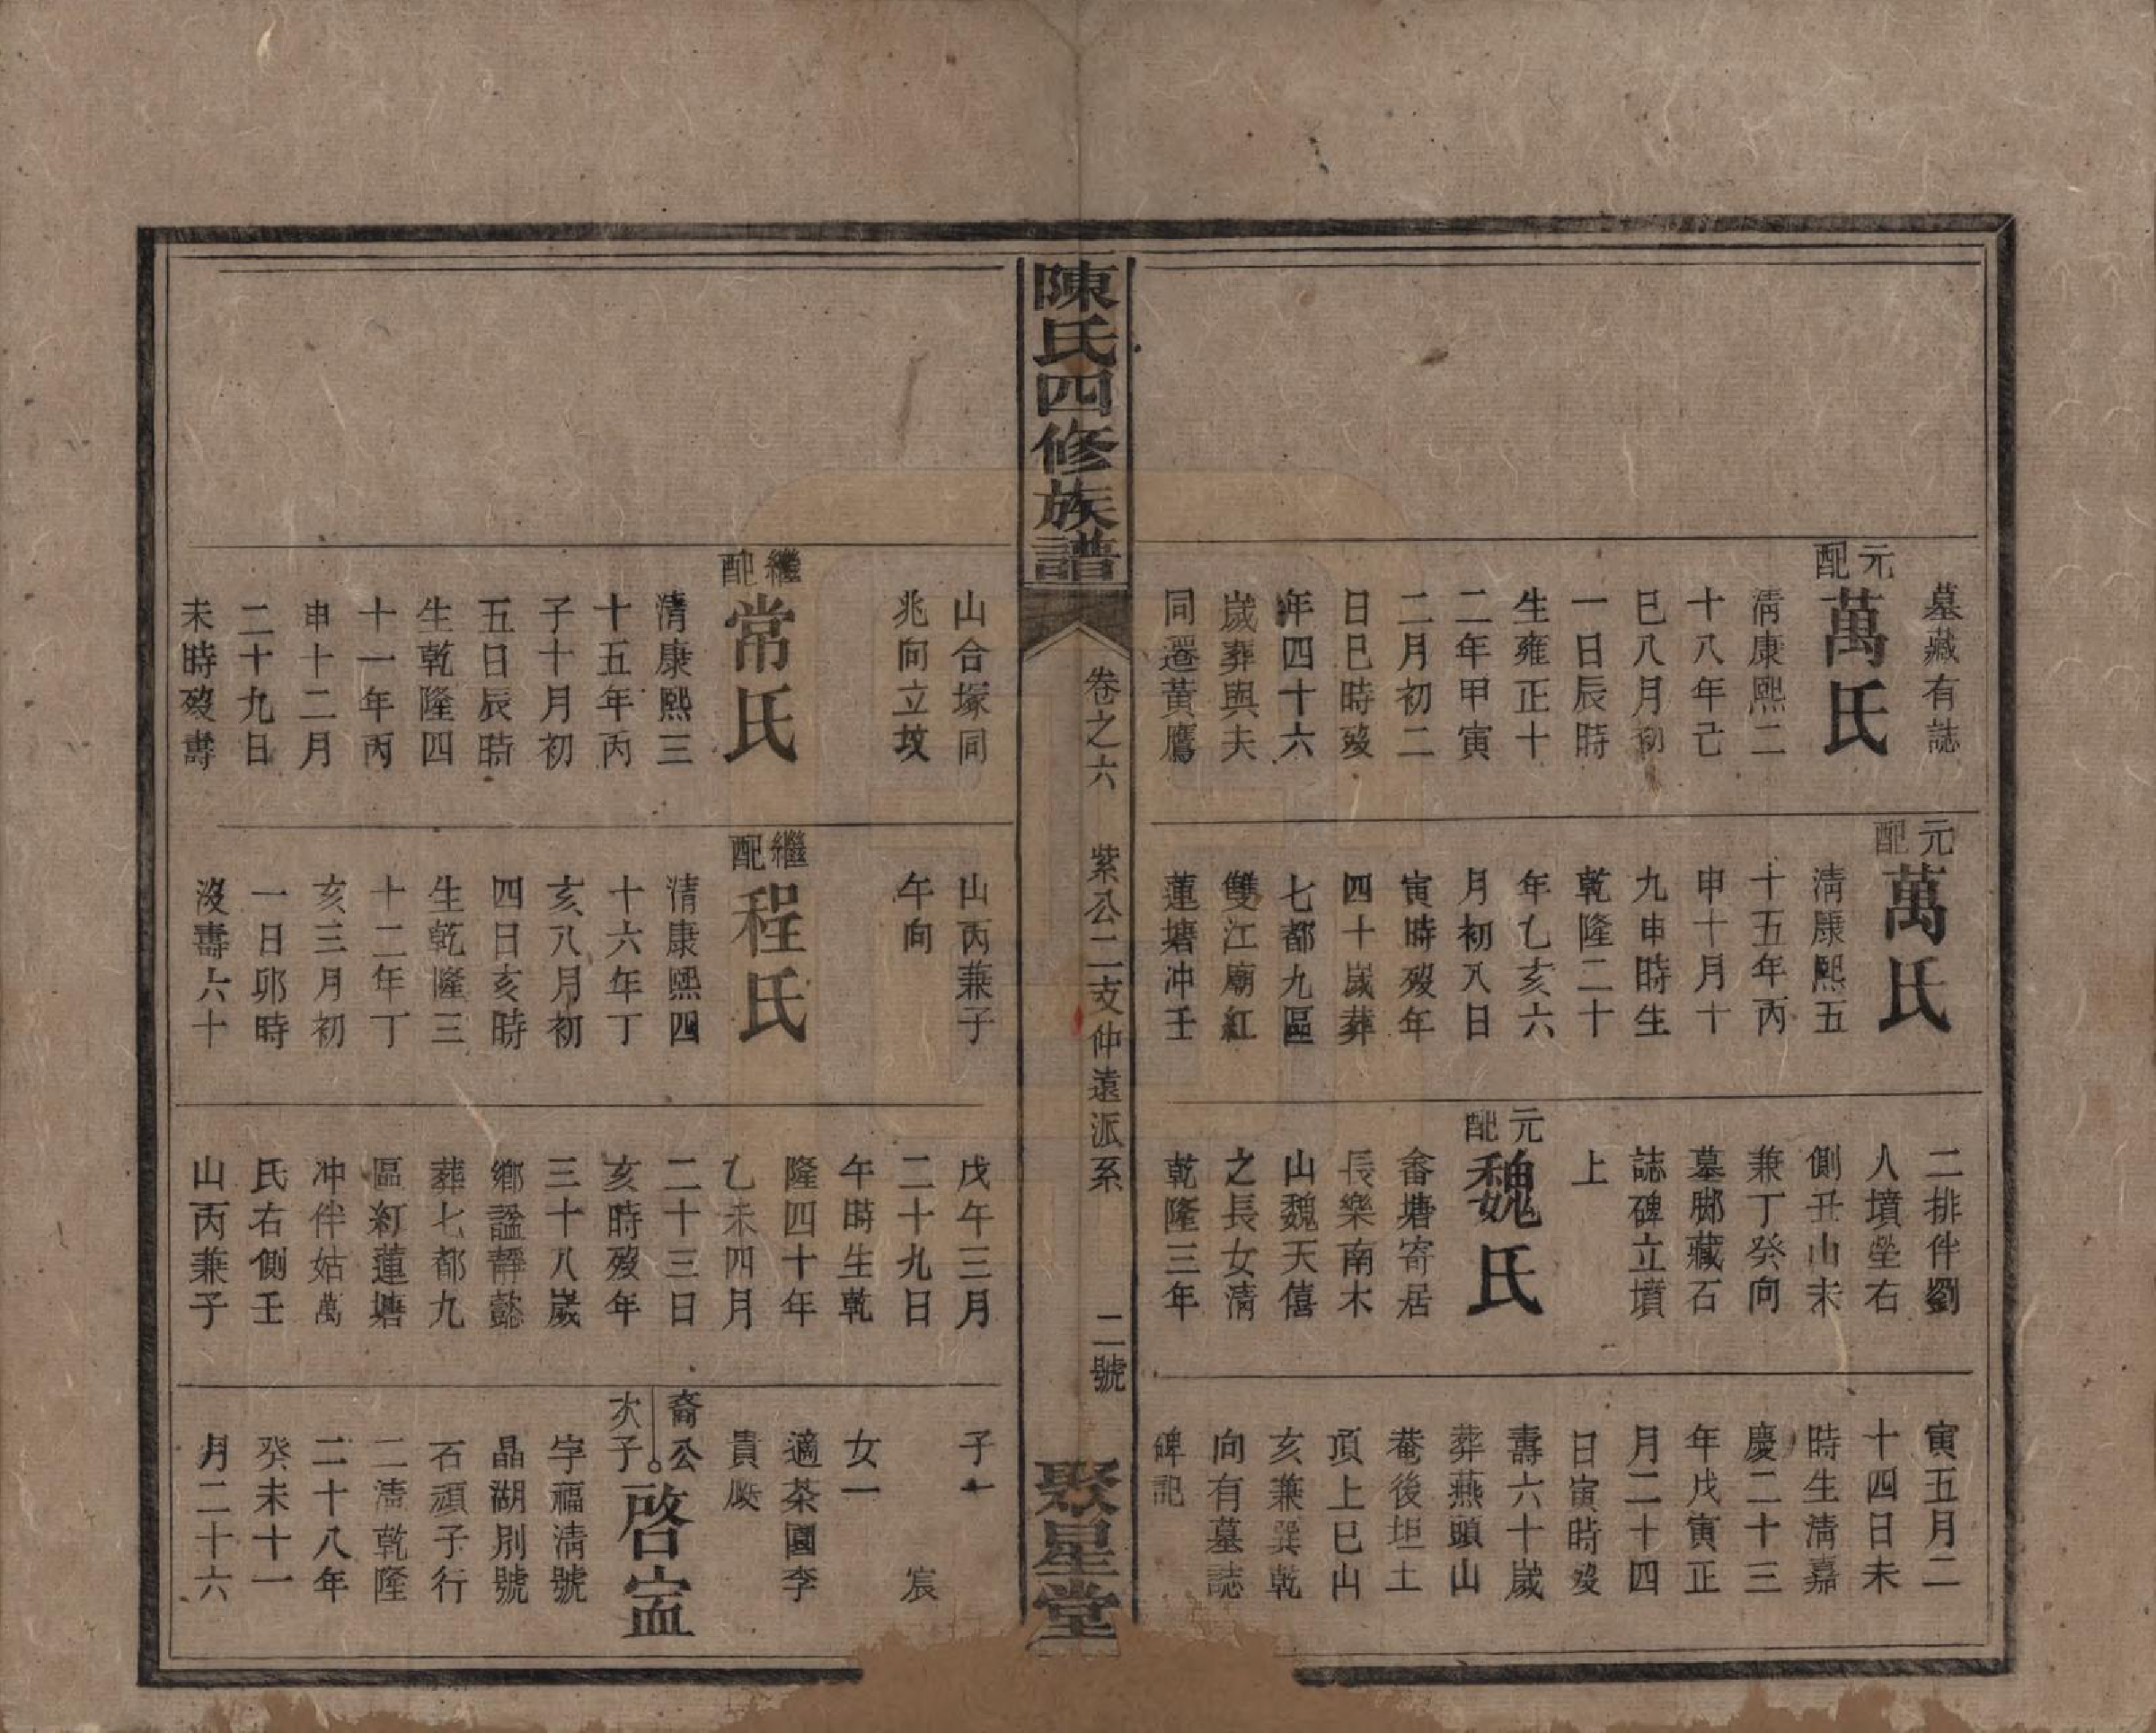 墓藏有誌
元配
萬氏
清康熙二
十八年己
巳八月初
一日辰時
生雍正十
二年甲寅
二月初二
日巳時歿
年四十六
歲葬與夫
同遷黃鷹
元配
萬氏
清康熙五
十五年丙
申十月十
九申時生
乾隆二十
年乙亥六
月初八日
寅時歿年
四十歲葬
七都九區
雙江廟紅
蓮塘冲壬
二排伴劉
人墳塋右
側丑山未
兼丁癸向
墓腳藏石
誌碑立墳
上
元配
魏氏
畬塘寄居
長樂南木
山魏天僖
之長女清
乾隆三年
寅五月二
十四日未
時生清嘉
慶二十三
年戊寅正
月二十四
日寅時歿
壽六十歲
葬燕頭山
菴後坦土
頂上巳山
亥兼巽乾
向有墓誌
碑記
陳氏四修族譜
卷之六
紫公二支仲遠派系
二號
聚星堂
山合塚同
兆向立坟
繼配
常氏
清康熙三
十五年丙
子十月初
五日辰時
生乾隆四
十一年丙
申十二月
二十九日
未時歿壽
山丙兼子
午向
繼配
程氏
清康熙四
十六年丁
亥八月初
四日亥時
生乾隆三
十二年丁
亥三月初
一日卯時
沒壽六十
戊午三月
二十九日
午時生乾
隆四十年
乙未四月
二十三日
亥時歿年
三十八歲
鄉謚靜懿
葬七都九
區紅蓮塘
冲伴姑萬
氏右側壬
山丙兼子
子一
宸
女一
適茶園李
貴
裔公
次子
啓寍
字福清號
晶湖別號
石頑子行
二清乾隆
二十八年
癸未十一
月二十六